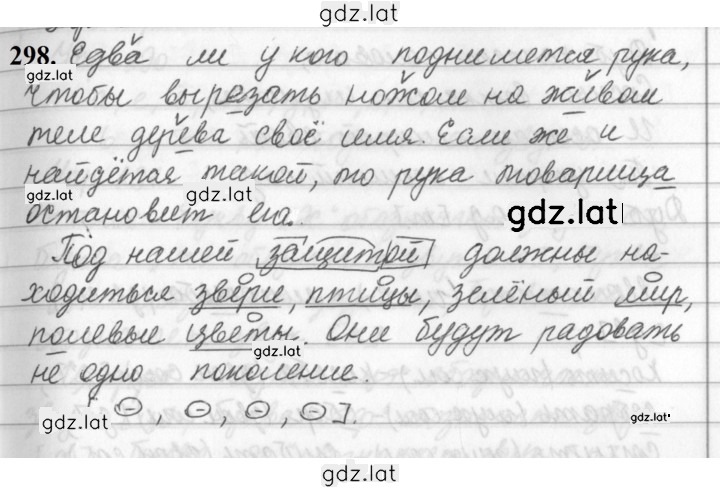 gdz.lat
298. Едва ли у кого поднимется рука,
gdz.lat
чтобы вырезать ножом на живом
теле дерева своё имя. Если же и
найдётся такой, то рука товарища
остановит его.
gdz.lat
gdz.lat
Под нашей защитой должны на-
ходиться звери, птицы, зелёный мир,
полевые цветы. Они будут радовать
gdz.lat
не одно поколение.
gdz.lat
gdz.lat
gdz.lat